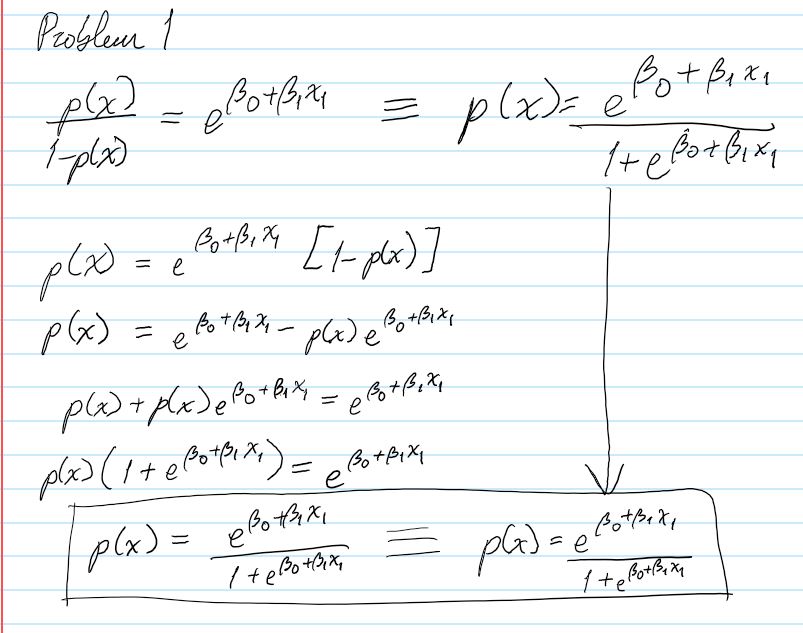 Problem 1
p(x)/1-p(x) = e^{β0+β1x1} ≡ p(x) = e^{β0+β1x1}/1+e^{β0+β1x1}
p(x) = e^{β0+β1x1} [1-p(x)]
p(x) = e^{β0+β1x1} - p(x)e^{β0+β1x1}
p(x)+p(x)e^{β0+β1x1} = e^{β0+β1x1}
p(x)(1+e^{β0+β1x1}) = e^{β0+β1x1}
p(x) = e^{β0+β1x1}/1+e^{β0+β1x1} ≡ p(x) = e^{β0+β1x1}/1+e^{β0+β1x1}